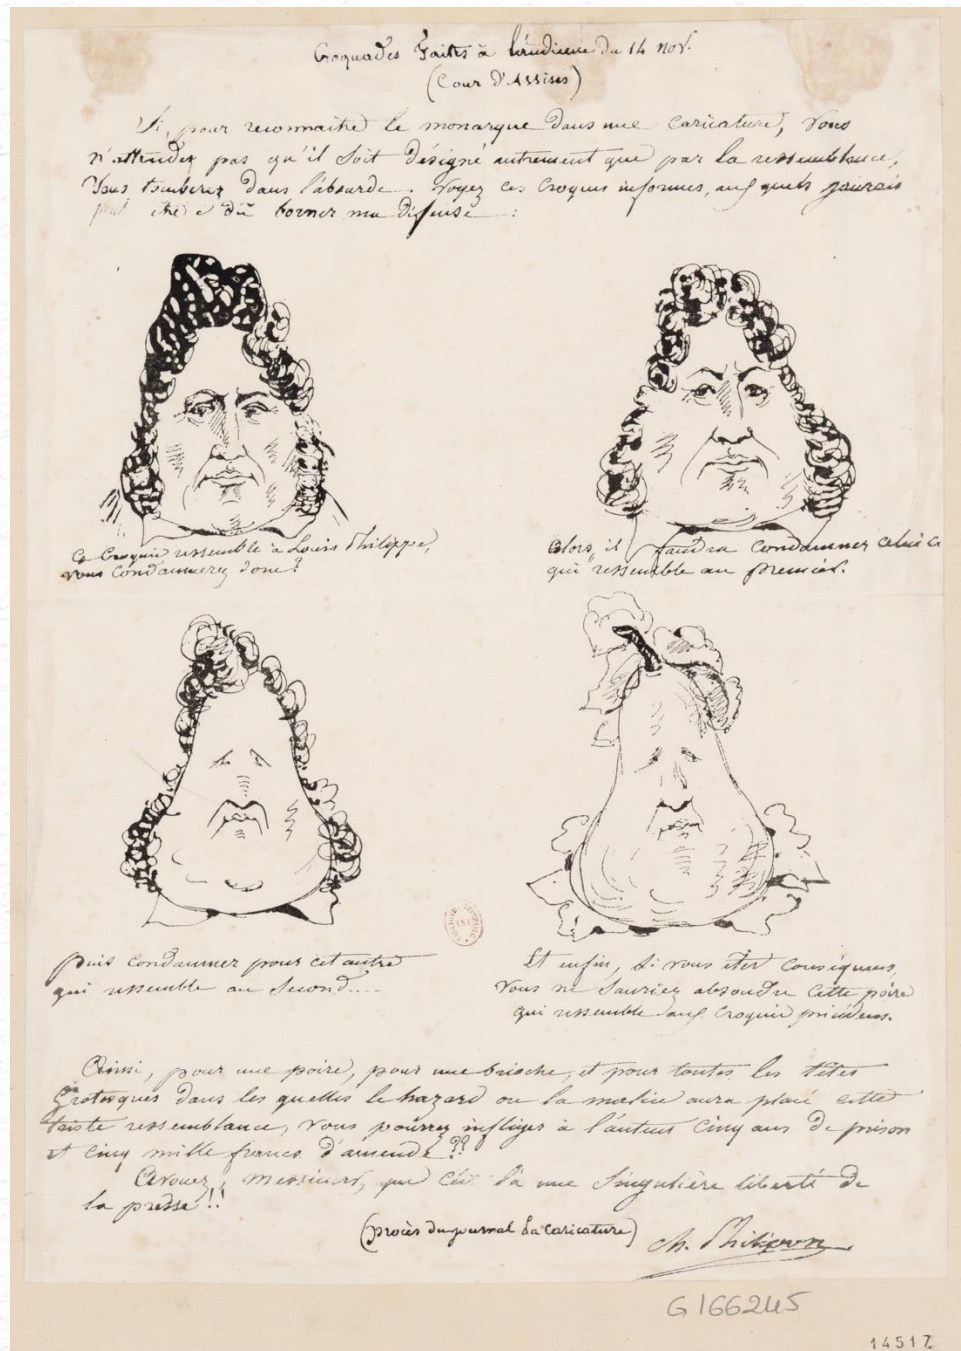 Croquades faites à l'audience du 14 nov.
(Cour d'Assises)
Si, pour reconnaitre le monarque dans une caricature, vous
n'attendez pas qu'il soit désigné autrement que par la ressemblance,
vous tomberez dans l'absurde. Voyez ces croquis informes, aux quels j'aurais
peut être dû borner ma défense :
Ce croquis ressemble à Louis Philippe,
vous condamnerez donc ?
Alors, il faudra condamner celui ci
qui ressemble au premier.
puis condamner pour cet autre
qui ressemble au second....
Et enfin, si vous êtes conséquens,
vous ne sauriez absoudre cette poire
qui ressemble aux croquis précédens.
Ainsi, pour une poire, pour une brioche, et pour toutes les têtes
grotesques dans les quelles le hazard ou la malice aura placé cette
triste ressemblance, vous pourrez infliger à l'auteur cinq ans de prison
et cinq mille francs d'amende ??
Avouez, Messieurs, que c'est là une singulière liberté de
la presse !!
(procès du journal La Caricature)
Ch. Philipon
G 166245
14517